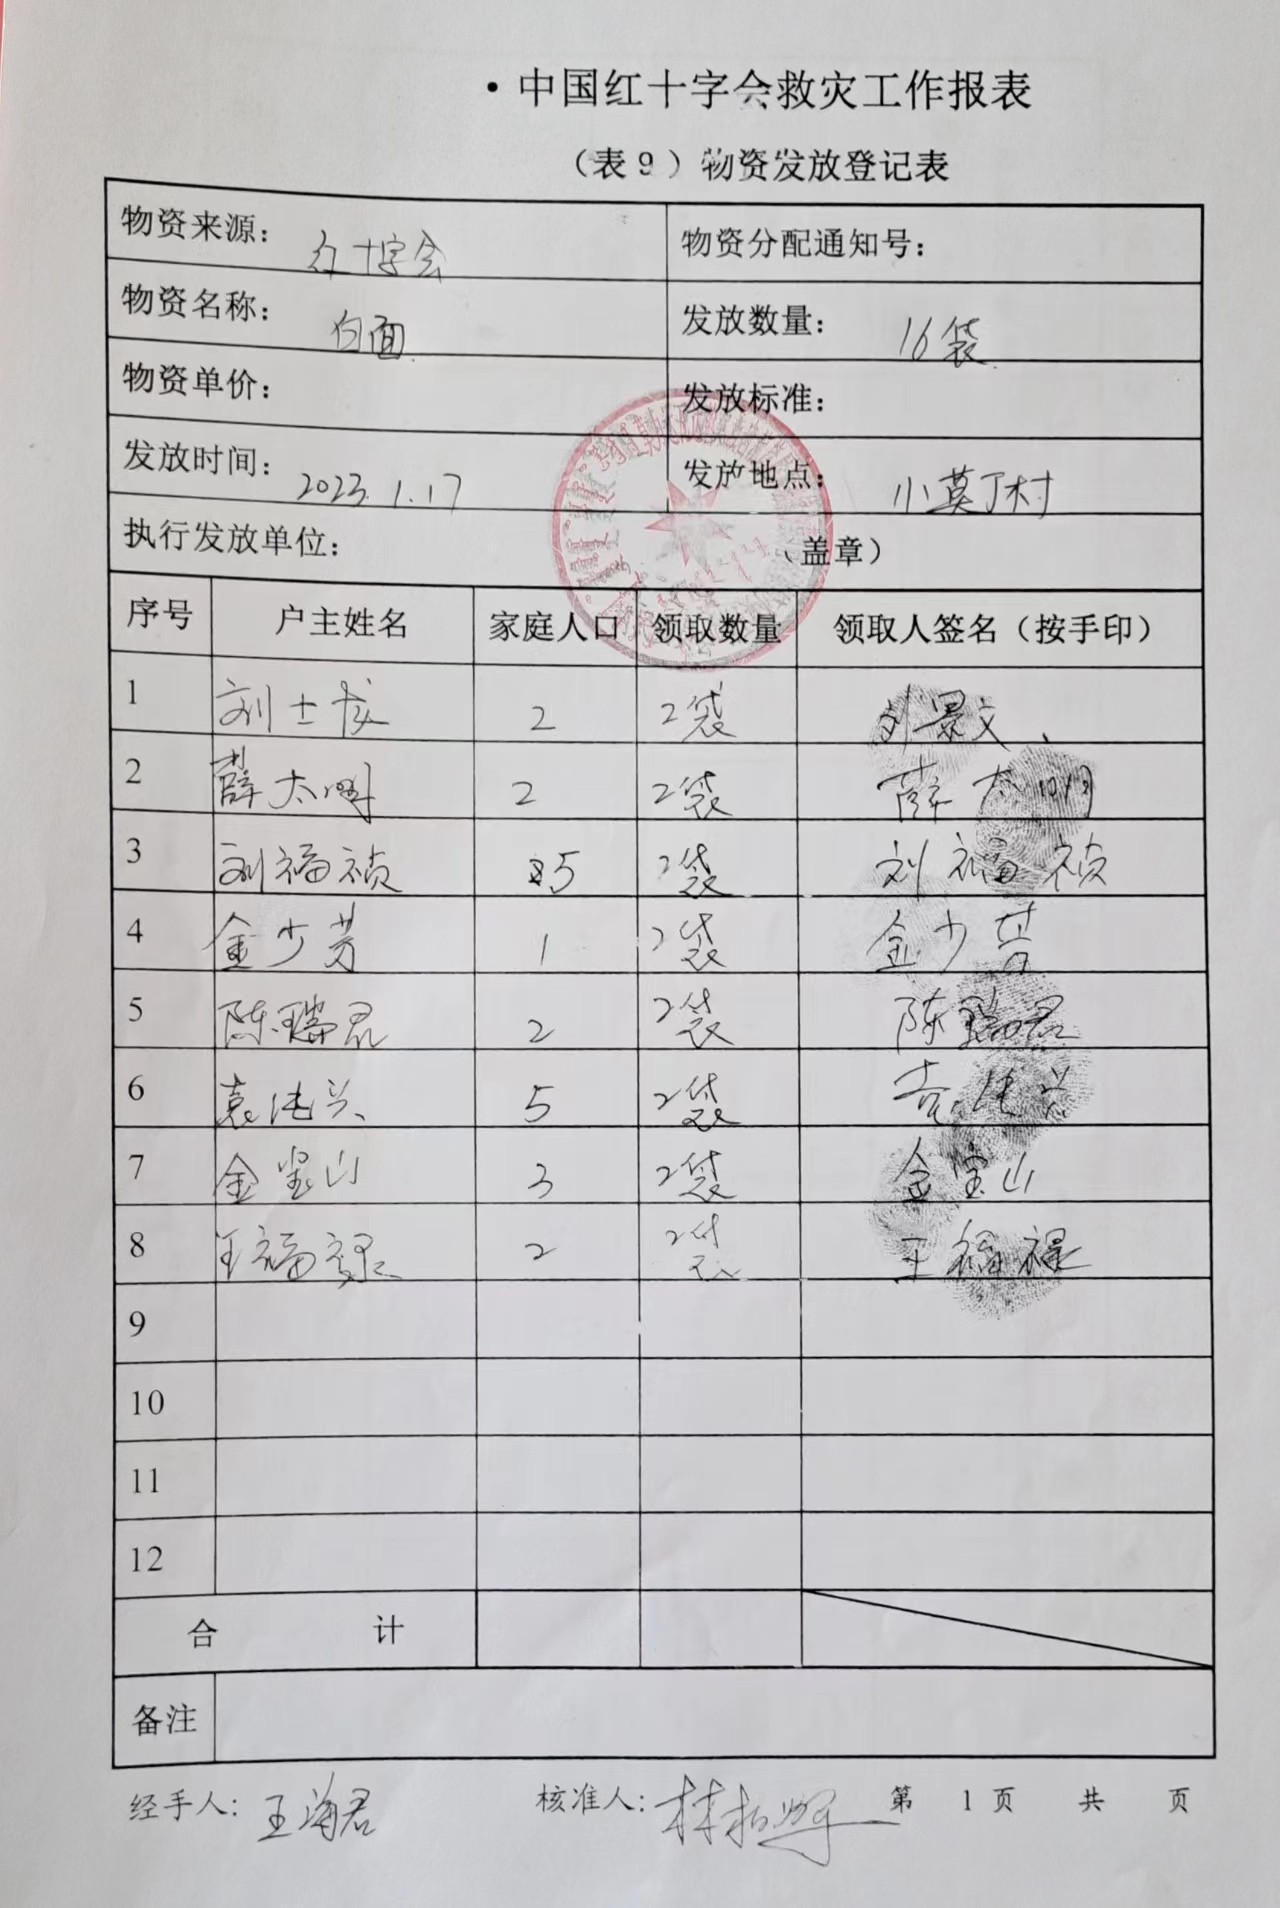 ·中国红十字会救灾工作报表
（表9）物资发放登记表
物资来源： 红十字会 物资分配通知号：
物资名称： 白面 发放数量： 16袋
物资单价： 发放标准：
发放时间： 2023.1.17 发放地点： 小莫丁村
执行发放单位： （盖章）
序号 户主姓名 家庭人口 领取数量 领取人签名（按手印）
1 刘士龙 2 2袋 刘景文
2 薛太明 2 2袋 薛太明
3 刘福祯 5 2袋 刘福祯
4 金少芳 1 2袋 金少芳
5 陈瑞君 2 2袋 陈瑞君
6 袁 兴 5 2袋 兴
7 金宝山 3 2袋 金宝山
8 王福禄 2 2袋 王福禄
9
10
11
12
合 计
备注
经手人：王海君 核准人： 第 1 页 共 页